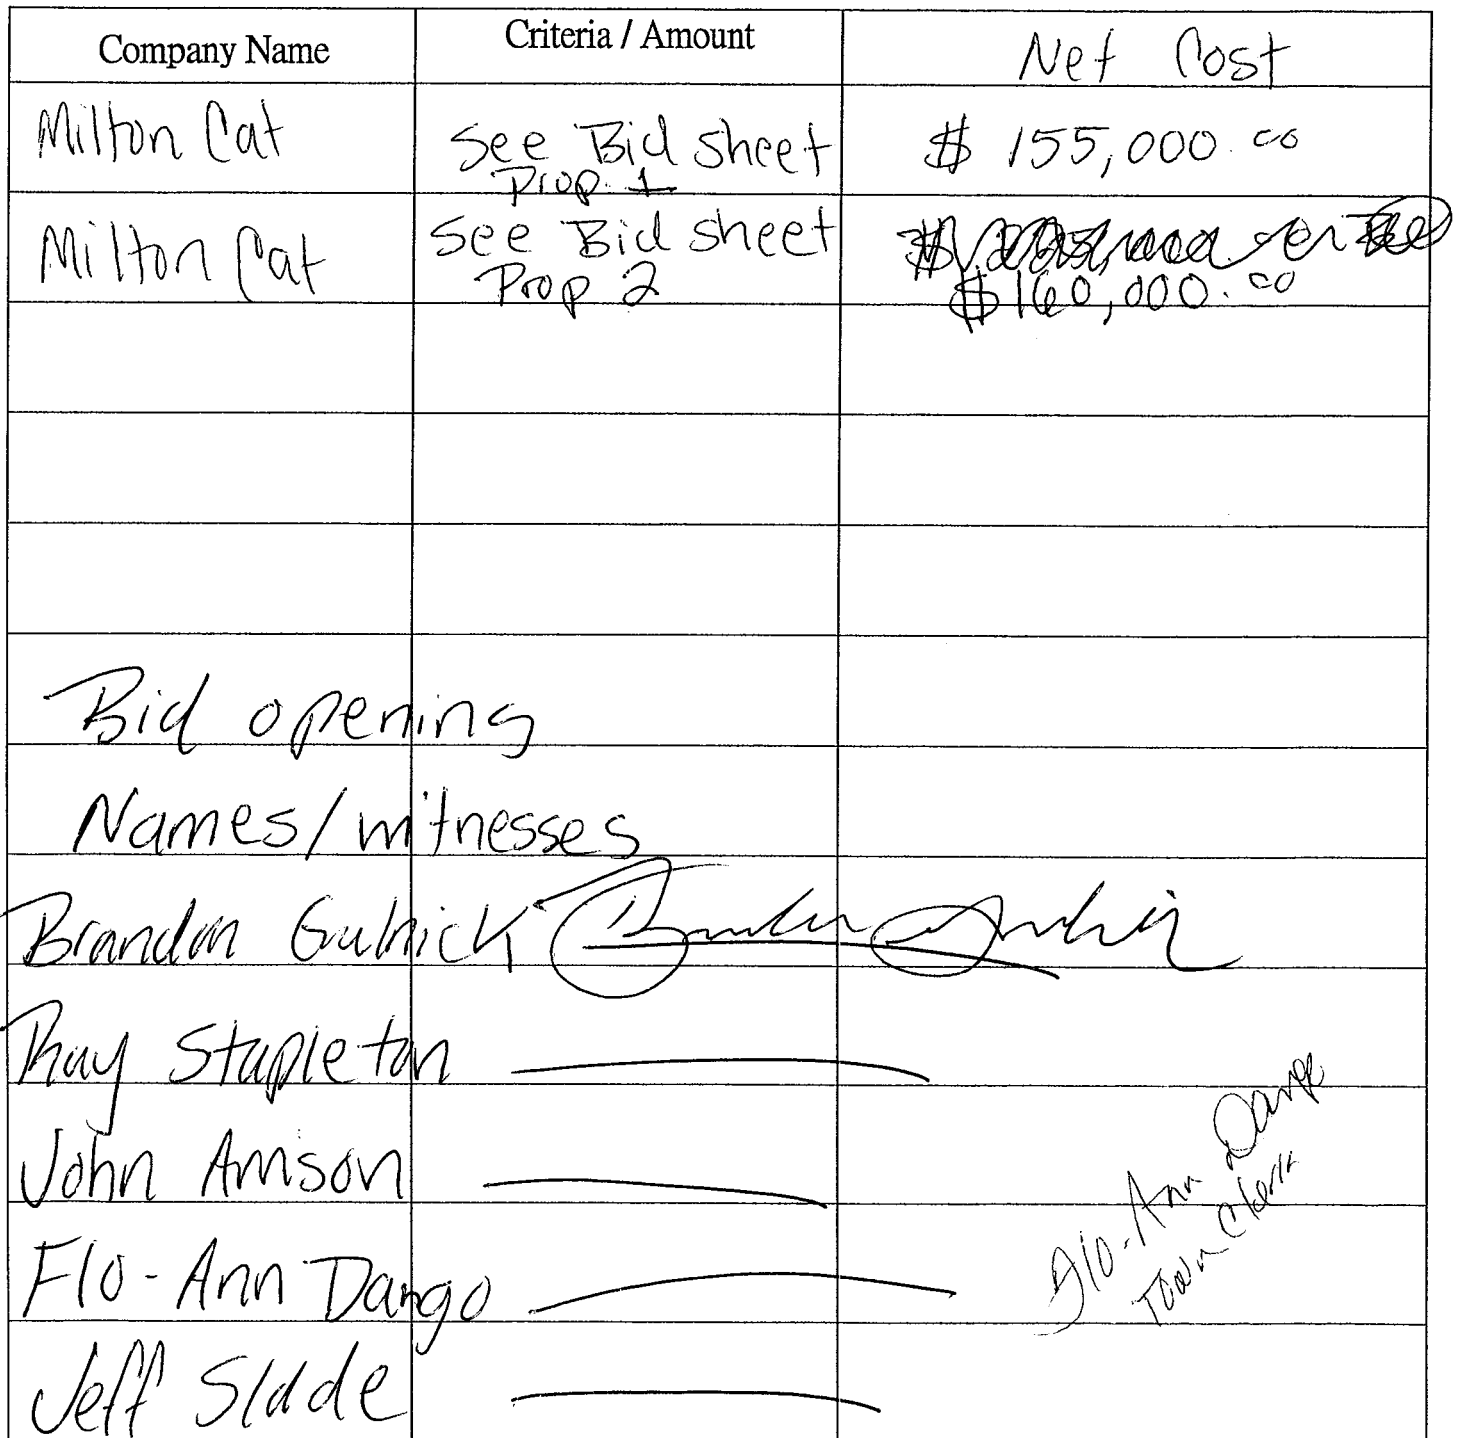 Company Name Criteria / Amount Net Cost
Milton Cat See Bid sheet $ 155,000.00
Prop. 1
Milton Cat See Bid sheet
Prop 2 $160,000.00
Bid opening
Names/witnesses
Brandon Gulnick
Ray Stapleton
John Amson
Flo-Ann Dango
Jeff Slade
Flo-Ann Dango
Town Clerk